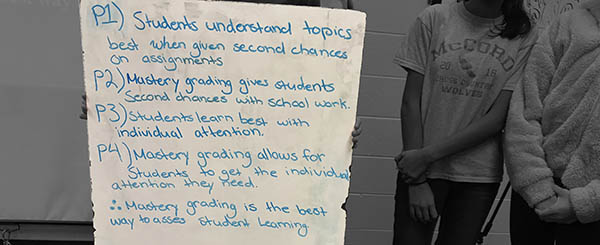 P1) Students understand topics
best when given second chances
on assignments
P2) Mastery grading gives students
Second chances with school work.
P3) Students learn best with
individual attention.
P4) Mastery grading allows for
Students to get the individual
attention they need.
∴ Mastery grading is the best
way to asses student learning
McCORD
2018
WOLVES